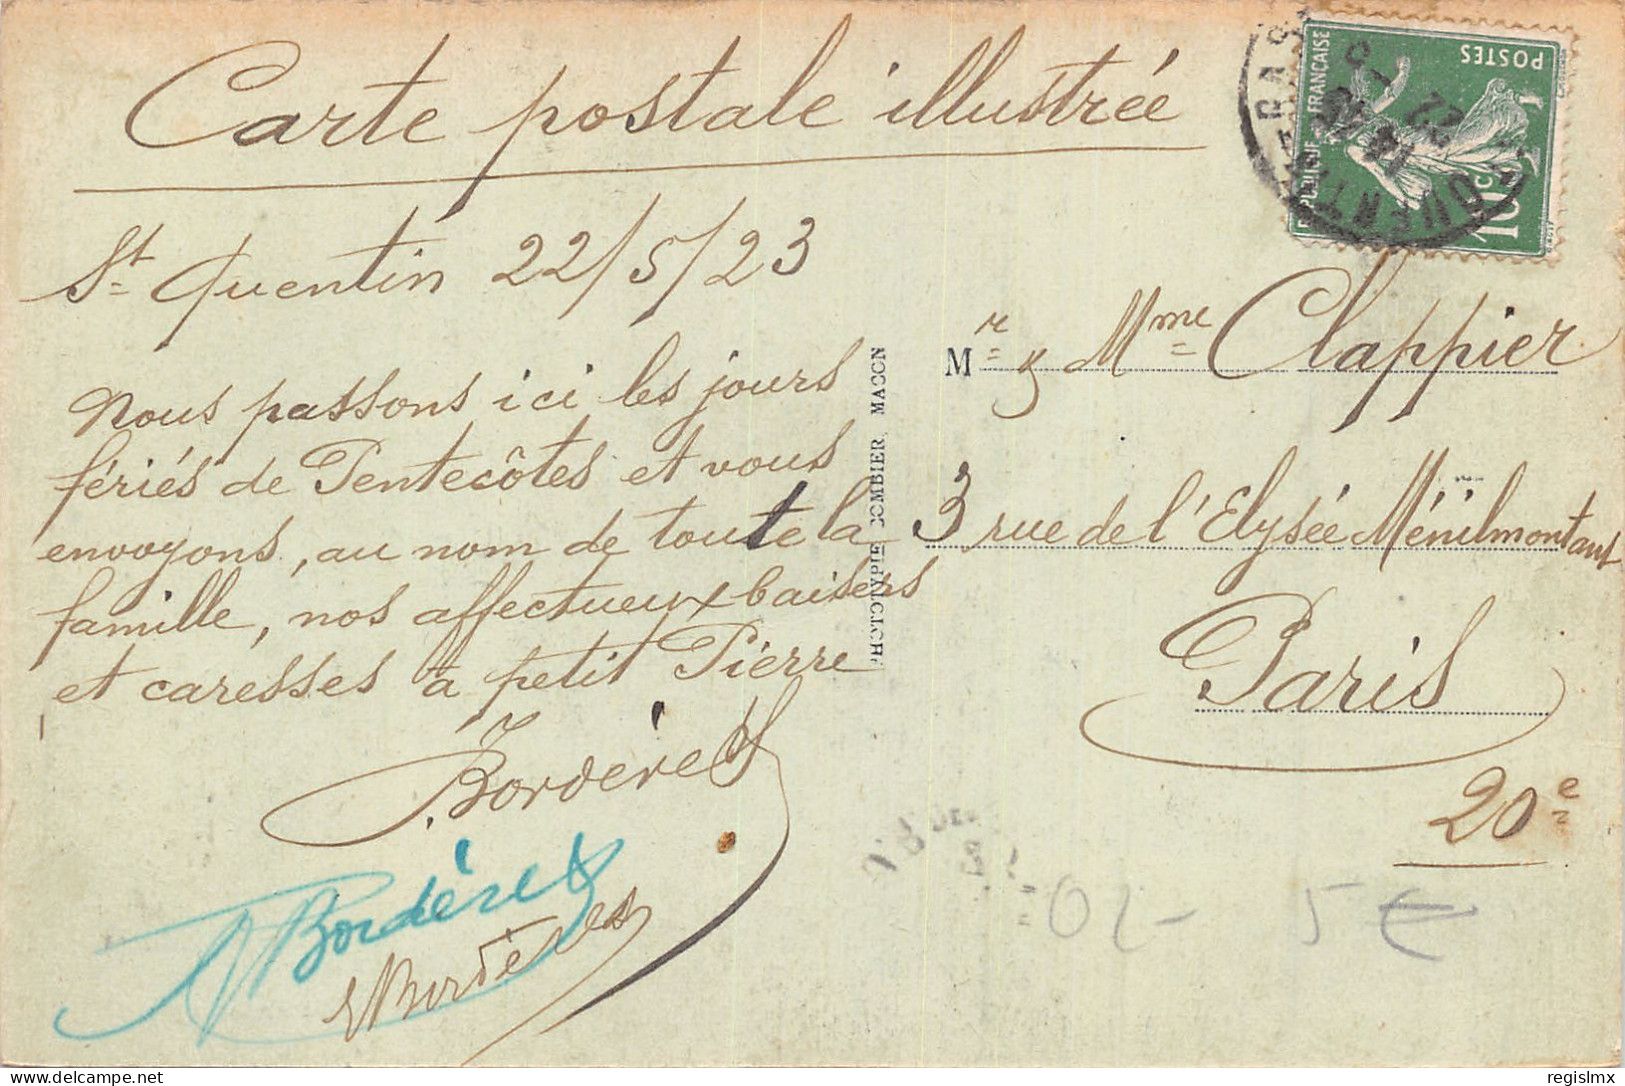 Carte postale illustrée
St Quentin 22/5/23
Nous passons ici les jours
fériés de Pentecôtes et vous
envoyons, au nom de toute la
famille, nos affectueux baisers
et caresses à petit Pierre
Borderes
Borderes
Borderes
PHOTOTYPIE COMBIER MACON
Mr & Mme Clappier
3 rue de l'Elysée Ménilmontant
Paris
20e
02- 5€
REPUBLIQUE FRANÇAISE
POSTES
10c
QUENTIN
22
delcampe.net
regislmx